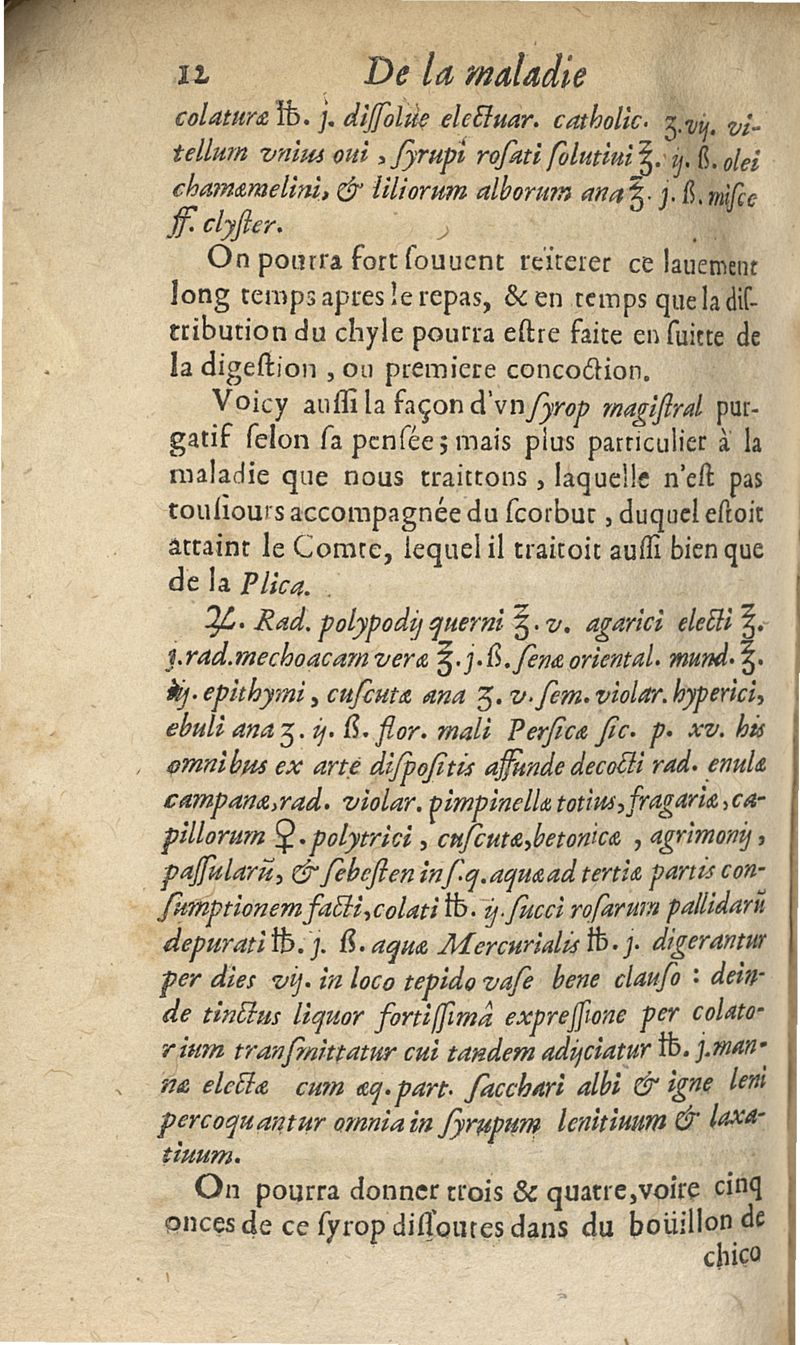 12 De la maladie
colaturæ ℔. j. diſſolue electuar. catholic. ʒ.vij. vi-
tellum vnius oui, ſyrupi roſati ſolutiui ℥. ij. ß. olei
chamæmelini, & liliorum alborum ana ℥. j. ß. miſce
ff. clyſter.
On pourra fort ſouuent reïterer ce lauement
long temps apres le repas, & en temps que la diſ-
tribution du chyle pourra eſtre faite en ſuitte de
la digeſtion, ou premiere concoction.
Voicy auſſi la façon d'vn ſyrop magiſtral pur-
gatif ſelon ſa penſée; mais plus particulier à la
maladie que nous traittons, laquelle n'eſt pas
touſiours accompagnée du ſcorbut, duquel eſtoit
attaint le Comte, lequel il traitoit auſſi bien que
de la Plica.
♃. Rad. polypodij querni ℥. v. agarici electi ℥.
j. rad. mechoacam veræ ℥. j. ß. ſenæ oriental. mund. ℥.
iij. epithymi, cuſcutæ ana ʒ. v. ſem. violar. hyperici,
ebuli ana ʒ. ij. ß. flor. mali Perſicæ ſic. p. xv. his
omnibus ex arte diſpoſitis affunde decocti rad. enulæ
campanæ, rad. violar. pimpinellæ totius, fragariæ, ca-
pillorum ♀. polytrici, cuſcutæ, betonicæ, agrimonij,
paſſularū, & ſebeſten in ſ. q. aquæ ad tertiæ partis con-
ſumptionem facti, colati ℔. ij. ſucci roſarum pallidarū
depurati ℔. j. ß. aquæ Mercurialis ℔. j. digerantur
per dies vij. in loco tepido vaſe bene clauſo : dein-
de tinctus liquor fortiſſimâ expreſſione per colato-
rium tranſmittatur cui tandem adijciatur ℔. j. man-
næ electæ cum æq. part. ſacchari albi & igne leni
percoquantur omnia in ſyrupum lenitiuum & laxa-
tiuum.
On pourra donner trois & quatre, voire cinq
onces de ce ſyrop diſſoutes dans du boüillon de
chico